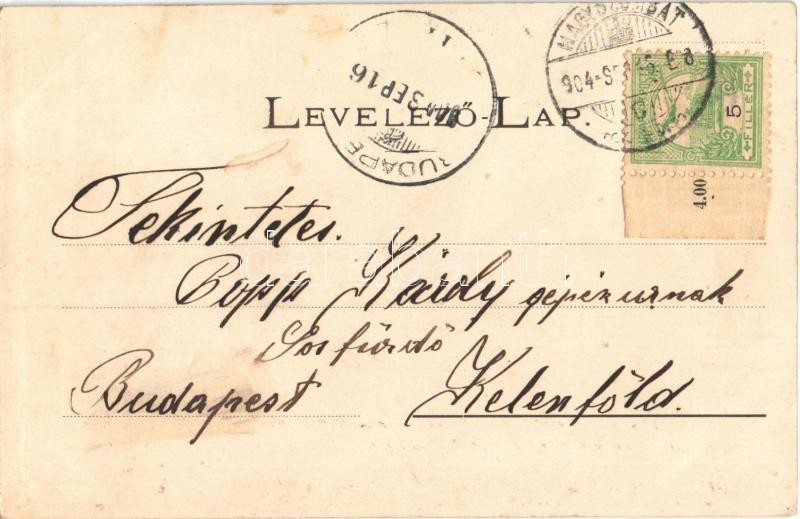 LEVELEZŐ-LAP.
NAGYSZOMBAT
BUDAPE
SEP 16
5
FILLÉR
4.00
Tekintetes.
Popp Károly gépész urnak
Sósfürdő
Budapest Kelenföld.
darabanth